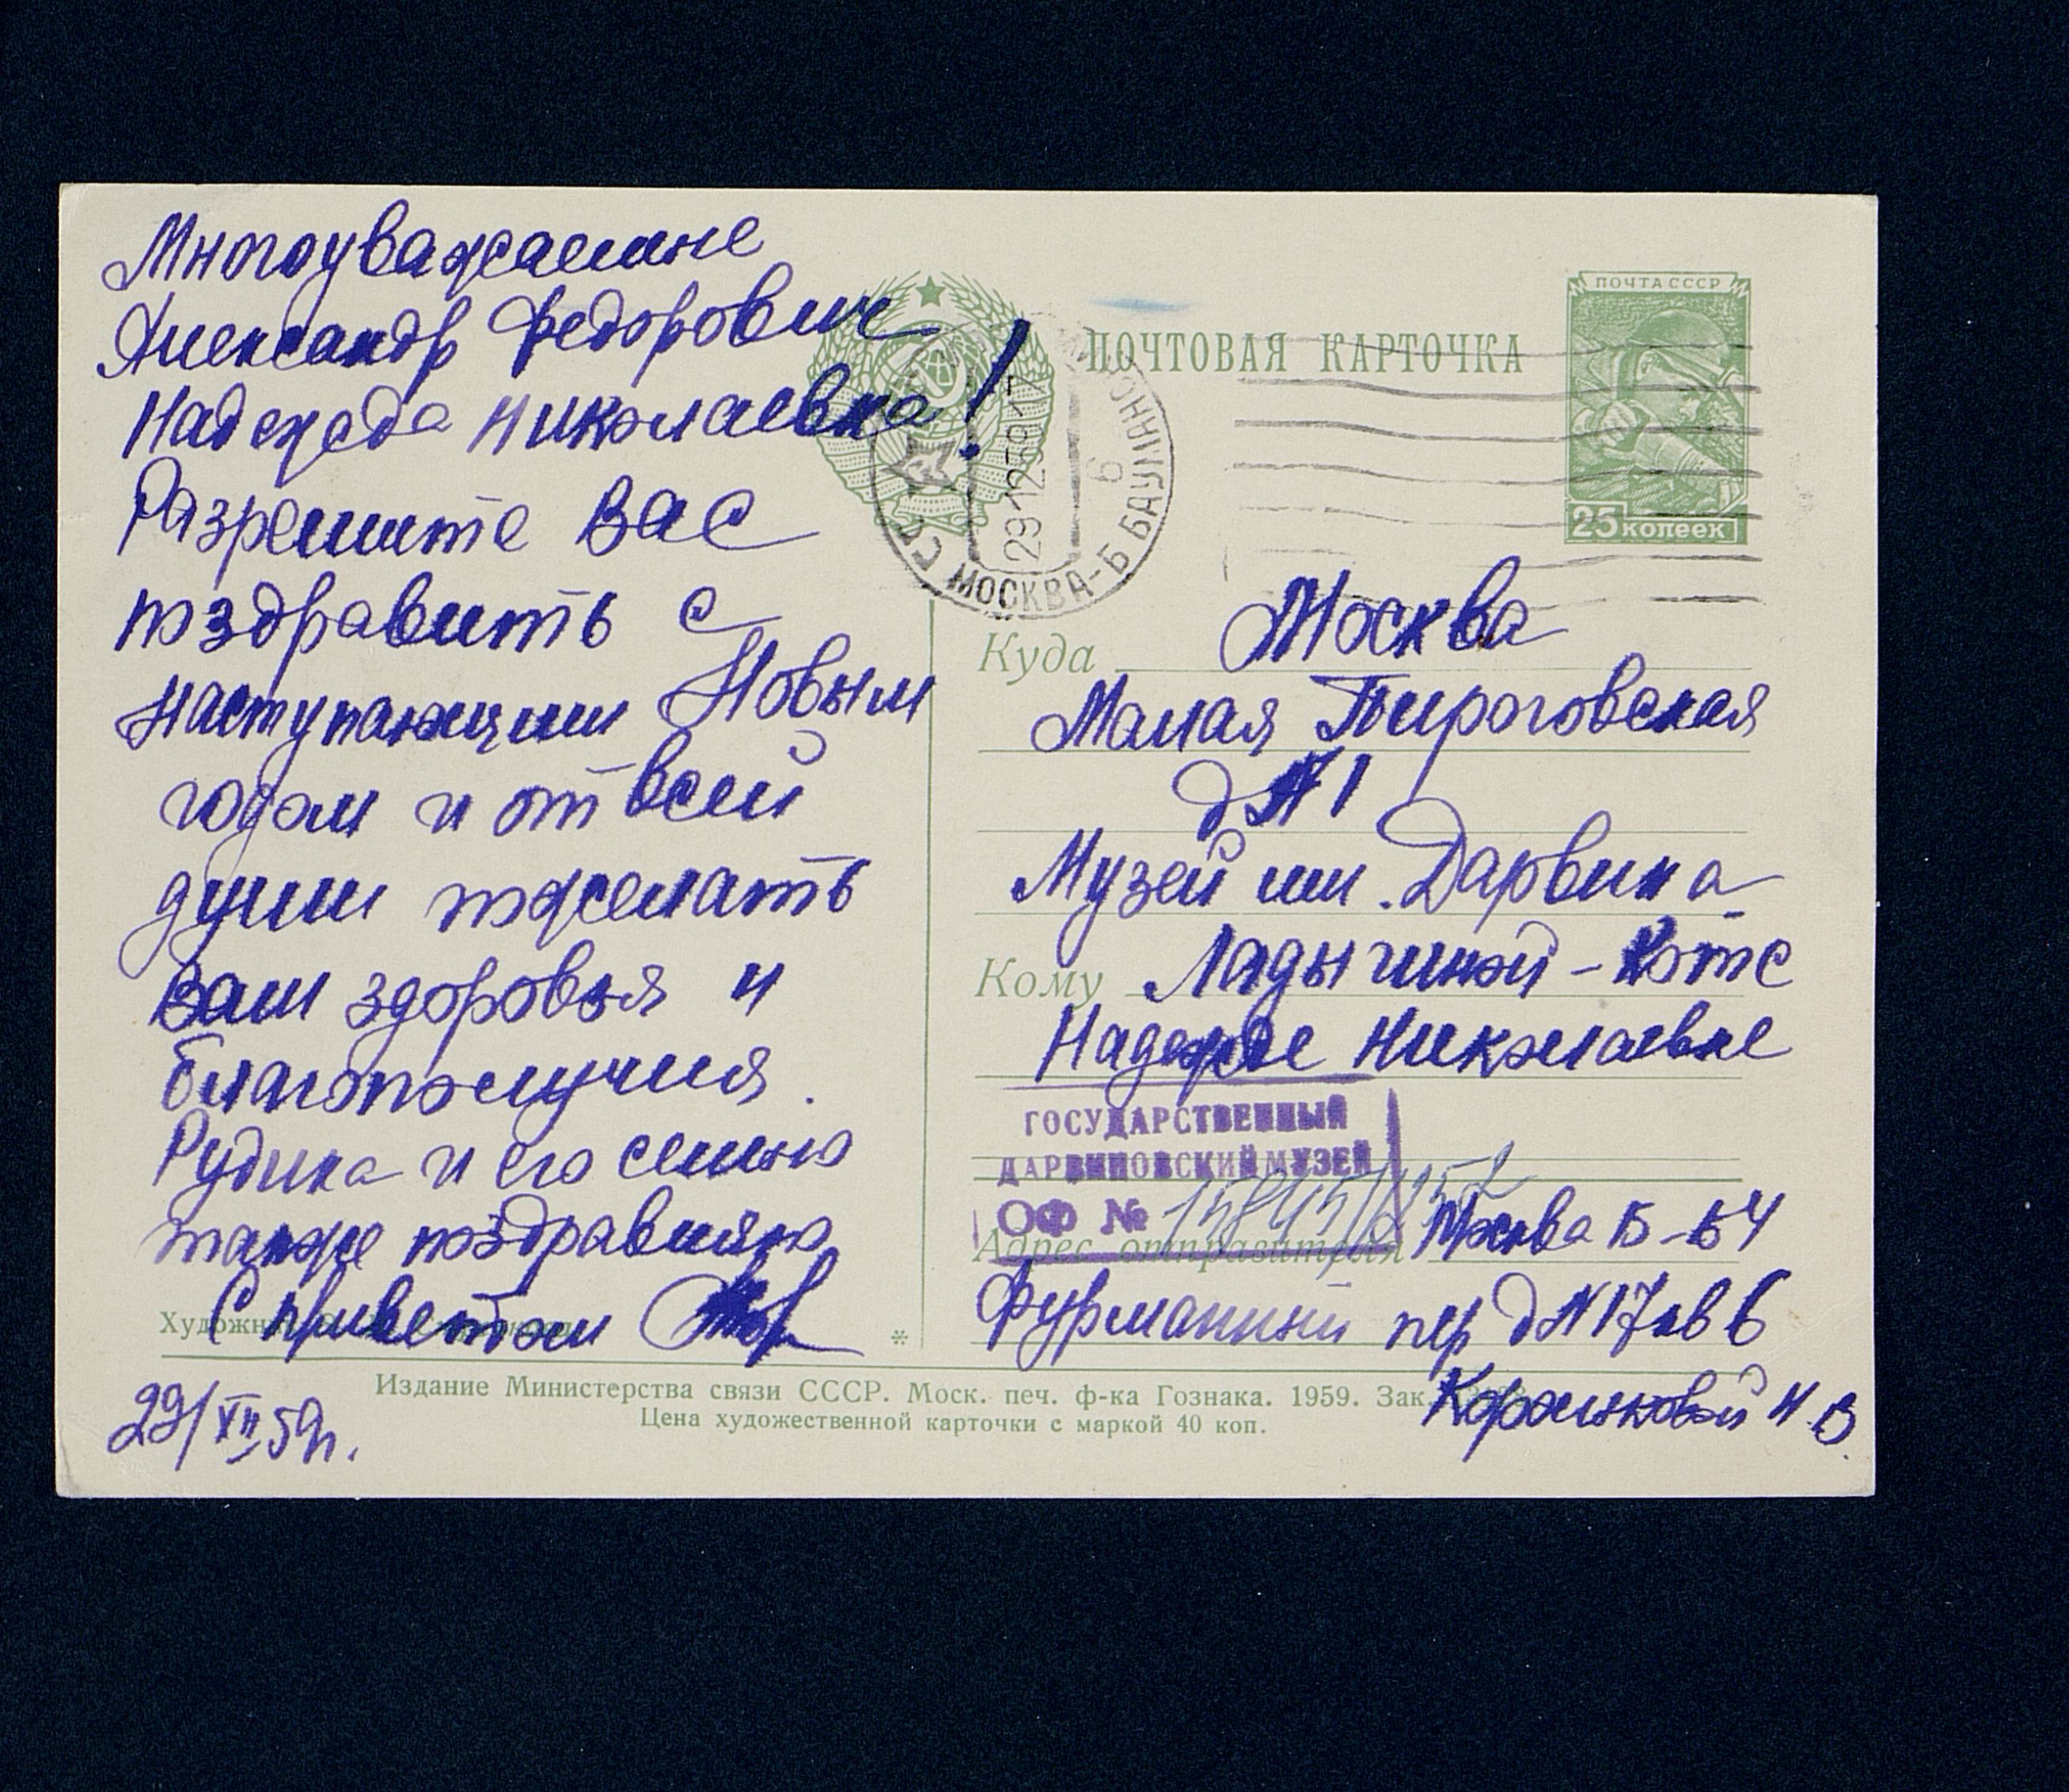 Многоуважаемые
Александр Федорович
Надежда Николаевна!
Разрешите Вас
поздравить с
наступающим Новым
годом и от всей
души пожелать
Вам здоровья и
благополучия.
Рудика и его семью
также поздравляю
С приветом
29/XII 59г.
Издание Министерства связи СССР. Моск. печ. ф-ка Гознака. 1959. Зак.
Цена художественной карточки с маркой 40 коп.
ПОЧТОВАЯ КАРТОЧКА
ПОЧТА СССР
25 копеек
СССР МОСКВА-Б БАУМАНС
29 12 59 17
6
Куда Москва
Малая Пироговская
д N 1
Музей им. Дарвина
Кому Ладыгиной-Котс
Надежде Николаевне
ГОСУДАРСТВЕННЫЙ
ДАРВИНОВСКИЙ МУЗЕЙ
ОФ №
Адрес отправителя Москва Б-64
Фурманный пер д N 17 кв 6
Н.В.